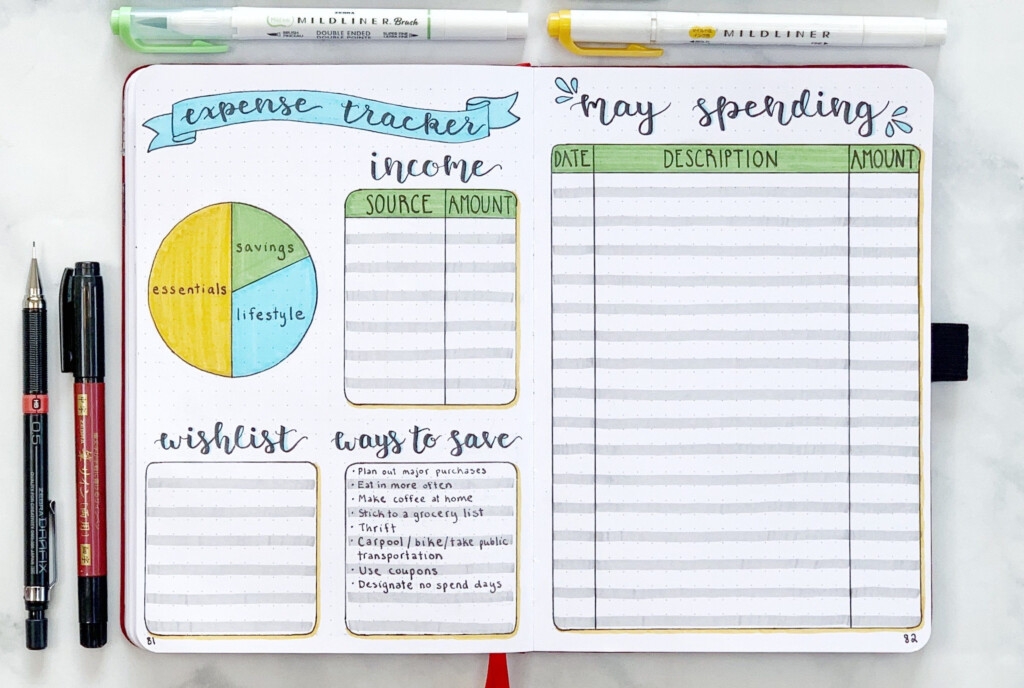 ZEBRA
MILDLINER Brush
DOUBLE ENDED
MILDLINER
expense tracker
income
SOURCE AMOUNT
savings
essentials
lifestyle
wishlist
ways to save
· Plan out major purchases
· Eat in more often
· Make coffee at home
· Stick to a grocery list
· Thrift
· Carpool/bike/take public
transportation
· Use coupons
· Designate no spend days
81
may spending
DATE DESCRIPTION AMOUNT
82
0.5
ZEBRA DRAFIX